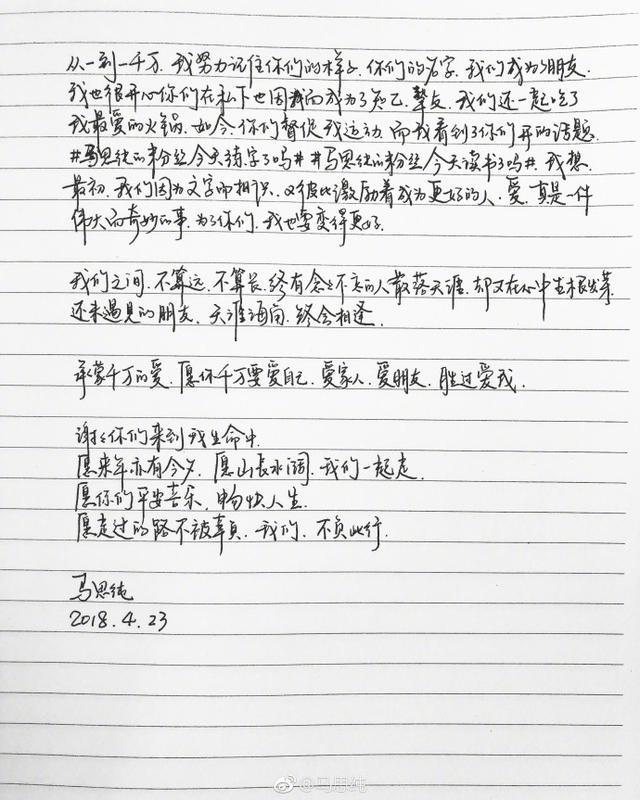 从一到一千万，我努力记住你们的样子，你们的名字，我们成为了朋友，
我也很开心你们在私下也因我而成为了知己，挚友，我们还一起吃了
我最爱的火锅，如今，你们督促我运动，而我看到了你们开的话题
#马思纯的粉丝今天练字了吗# #马思纯的粉丝今天读书了吗#，我想，
最初，我们因为文字而相识，又彼此激励着成为更好的人，爱，真是一件
伟大而奇妙的事，为了你们，我也要变得更好.
我们之间，不算远，不算长，终有念念不忘的人散落天涯，却又在心中生根发芽，
还未遇见的朋友，天涯海角，终会相逢.
承蒙千万的爱，愿你千万要爱自己，爱家人，爱朋友，胜过爱我.
谢谢你们来到我生命中.
愿来年亦有今夕，愿山长水阔，我们一起走.
愿你们平安喜乐，畅快人生.
愿走过的路不被辜负，我们，不负此行.
马思纯
2018.4.23
@马思纯